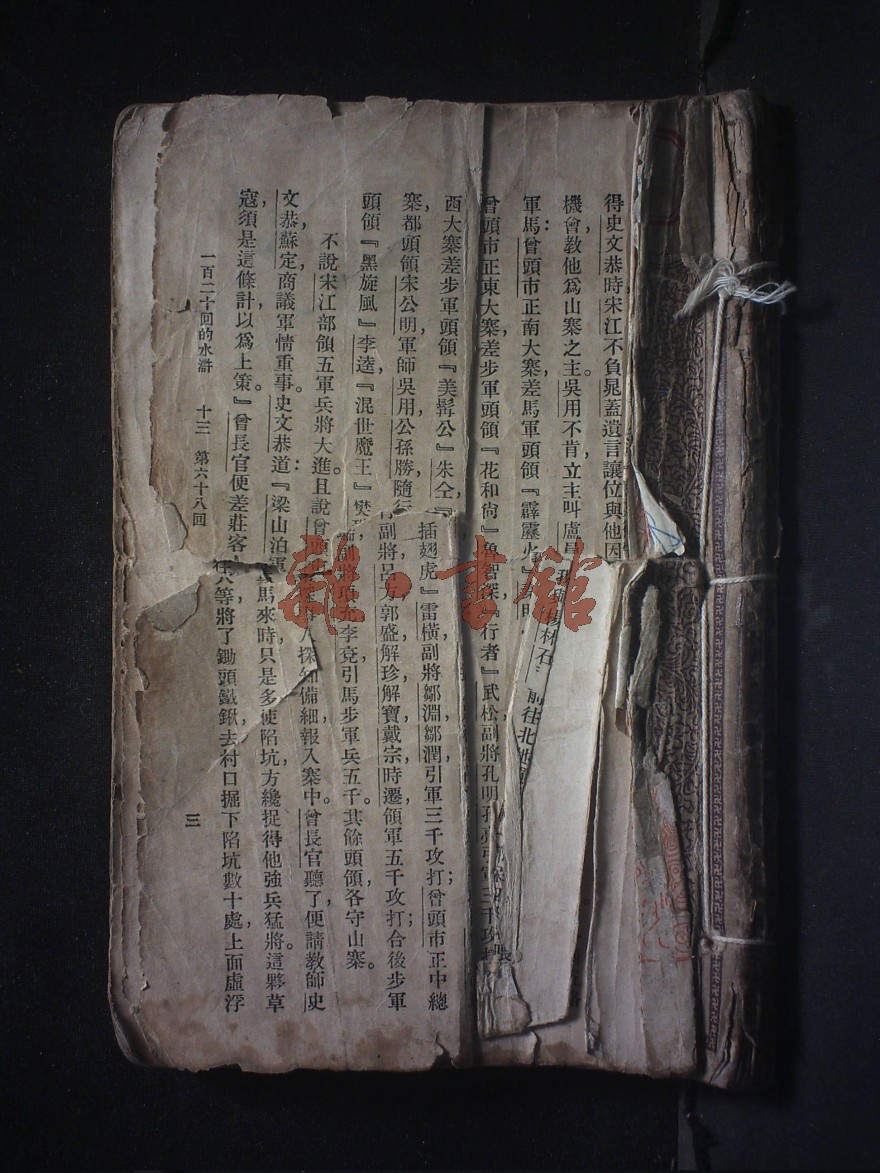 得史文恭時宋江不負晁蓋遺言讓位與他因
機會教他爲山寨之主。吳用不肯立主叫盧
軍馬：曾頭市正南大寨差馬軍頭領『霹靂火』秦明，
曾頭市正東大寨差步軍頭領『花和尙』魯智深『行者』武松，副將孔明孔亮引軍三千攻打
西大寨差步軍頭領『美髯公』朱仝，『插翅虎』雷橫，副將鄒淵鄒潤引軍三千攻打；曾頭市正中總
寨，都頭領宋公明，軍師吳用公孫勝，隨行副將呂方郭盛，解珍解寶，戴宗時遷，領軍五千攻打；合後步軍
頭領『黑旋風』李逵，『混世魔王』樊瑞，副將項充李袞，引馬步軍兵五千。其餘頭領，各守山寨。
不說宋江部領五軍兵將大進。且說曾探知備細，報入寨中。曾長官聽了，便請教師史
文恭，蘇定，商議軍情重事。史文恭道：『梁山泊軍馬來時，只是多使陷坑，方纔捉得他強兵猛將。這夥草
寇，須是這條計，以爲上策。』曾長官便差莊客人等，將了鋤頭鐵鍬，去村口掘下陷坑數十處，上面虛浮
一百二十回的水滸 十三 第六十八回
三
楊林石
前往北地
雜·書館